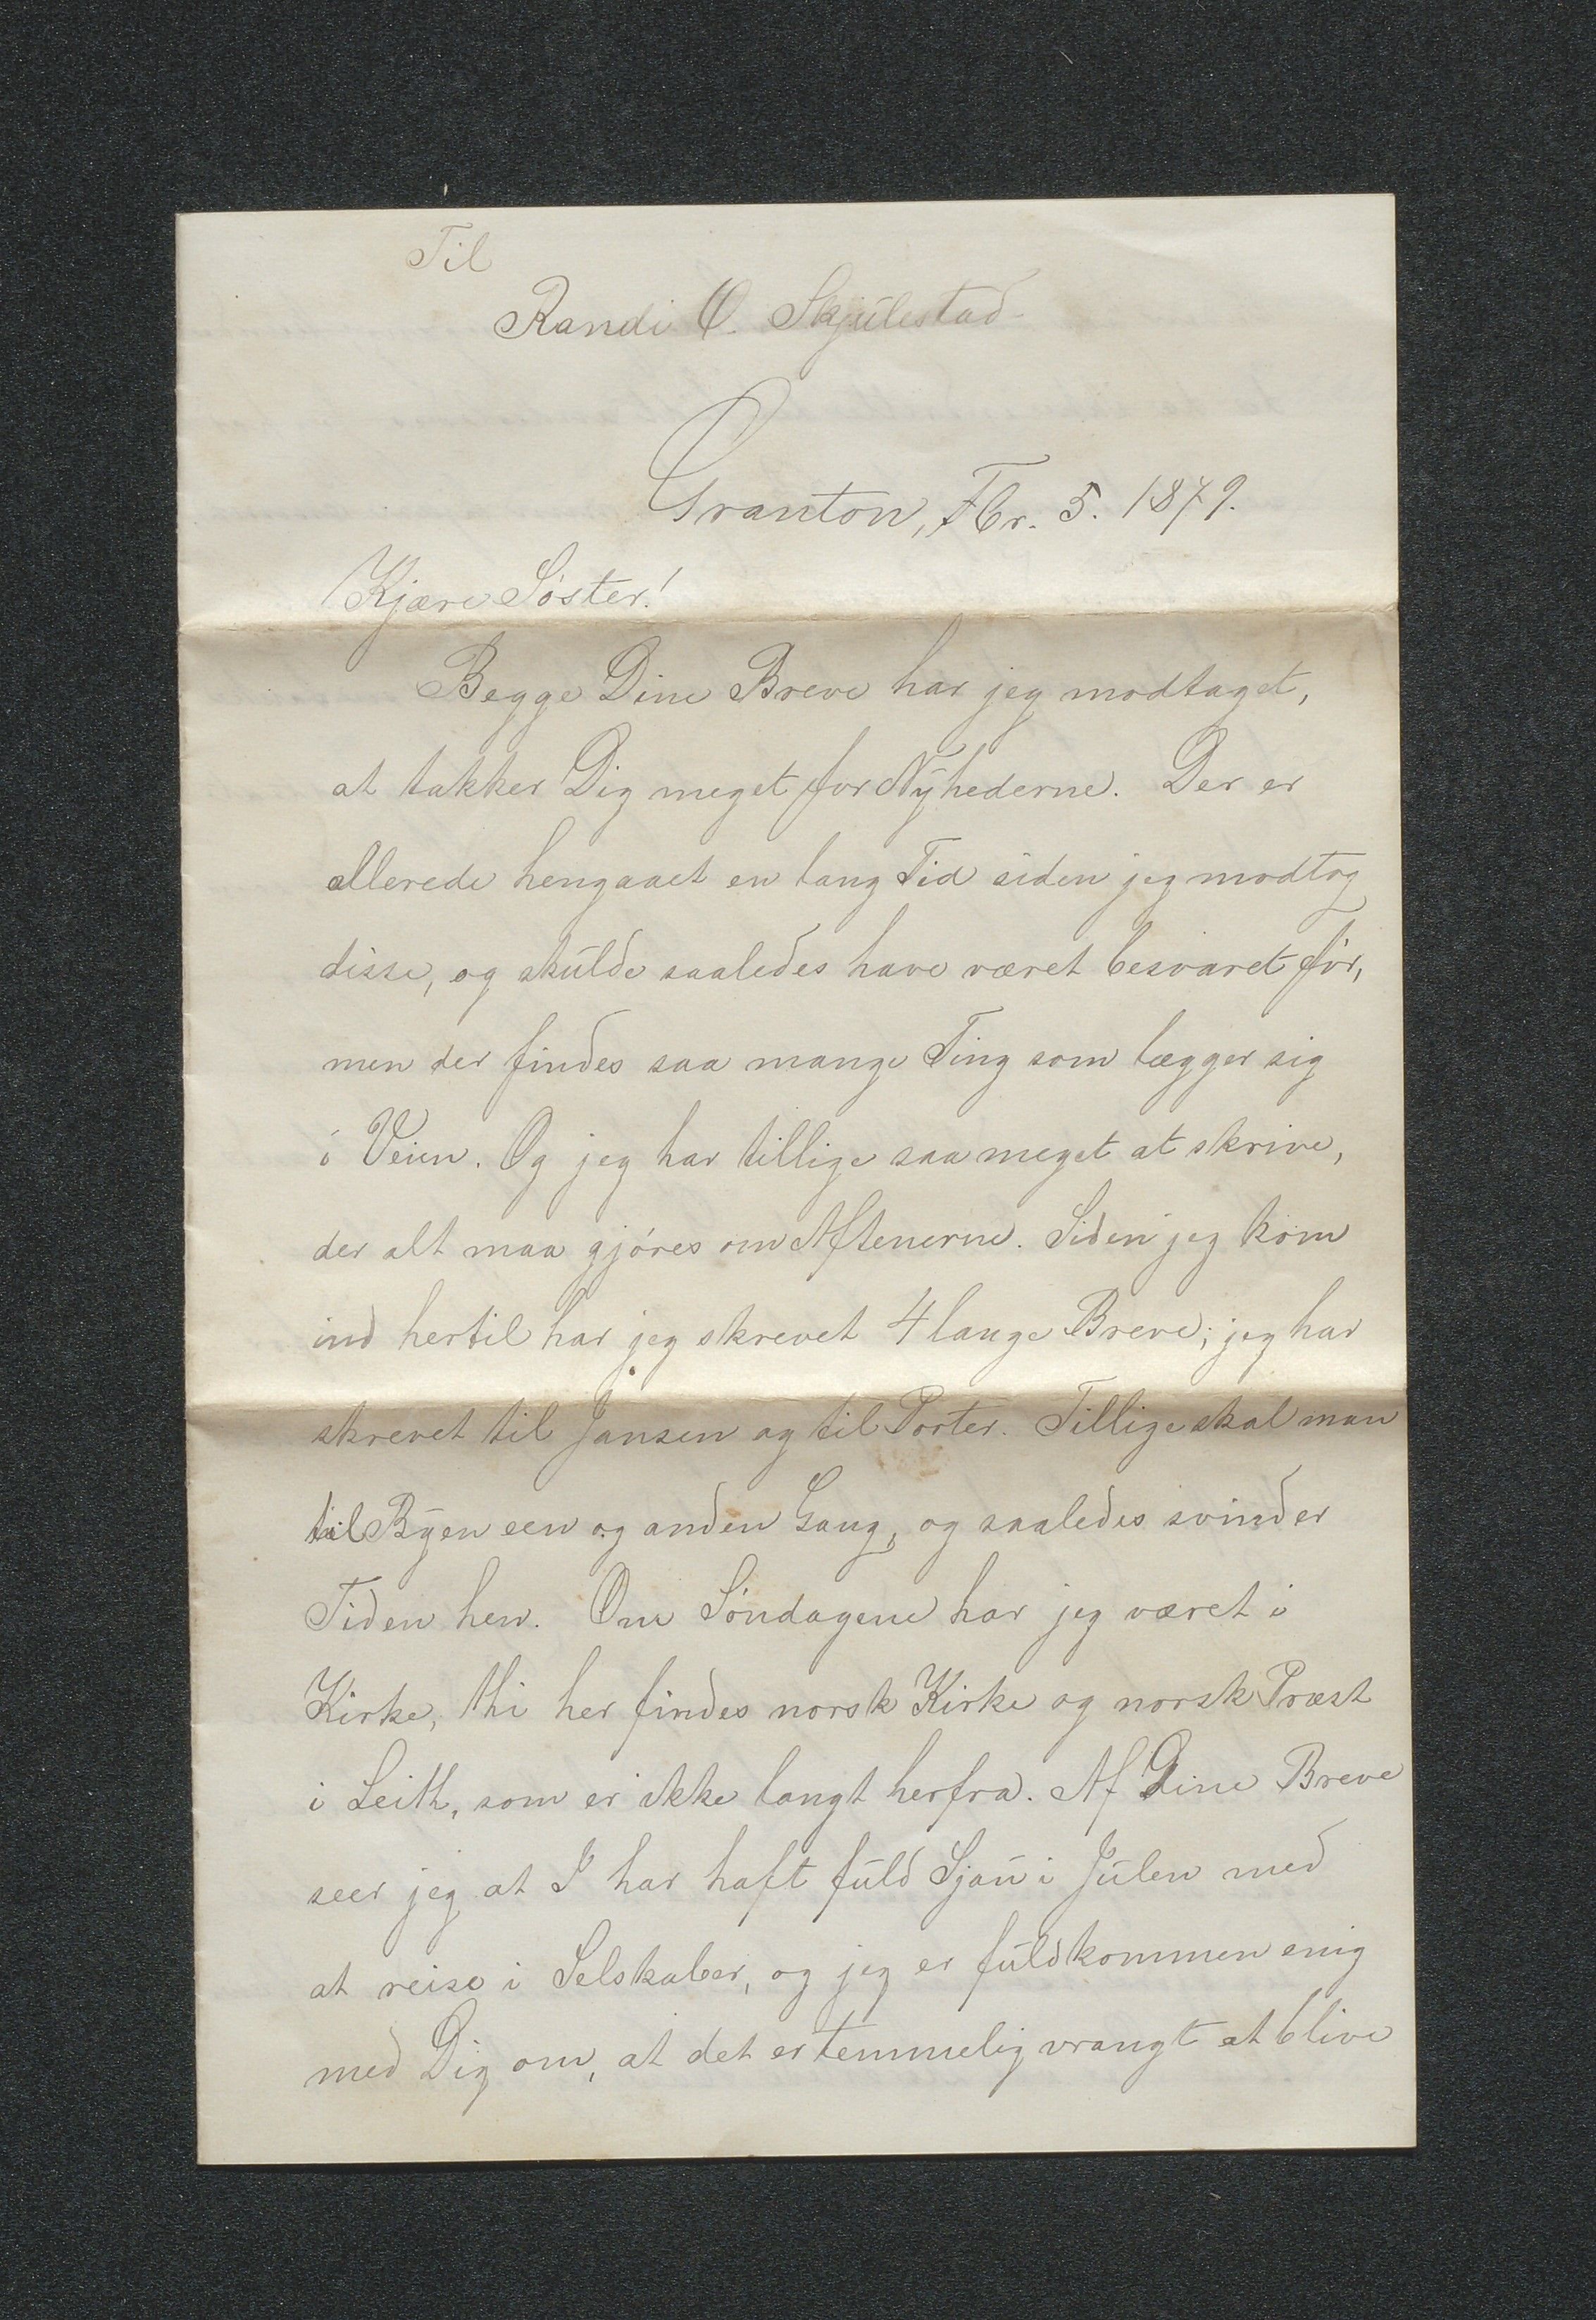 Til
Randi O. Skjülestad
Granton, Fbr. 5. 1879.
Kjære Söster!
Begge Dine Breve har jeg modtaget,
at takker Dig meget for Nÿhederne. Der er
allerede hengaaet en lang Tid siden jeg modtog
disse, og skulde saaledes have været besvaret för,
men der findes saa mange Ting som lægger sig
i Veien. Og jeg har tillige saa meget at skrive,
der alt maa gjöres om Aftenerne. Siden jeg kom
ind hertil har jeg skrevet 4 lange Breve; jeg har
skrevet til Jansen og til Porter. Tillige skal man
til Bÿen een og anden Gang, og saaledes svinder
Tiden hen. Om Söndagene har jeg været i
Kirke, thi her findes norsk Kirke og norsk Præst
i Leith, som er ikke langt herfra. Af Dine Breve
seer jeg at I har haft fuld Sjau i Julen med
at reise i Selskaber, og jeg er fuldkommen enig
med Dig om, at det er temmelig vrangt at blive